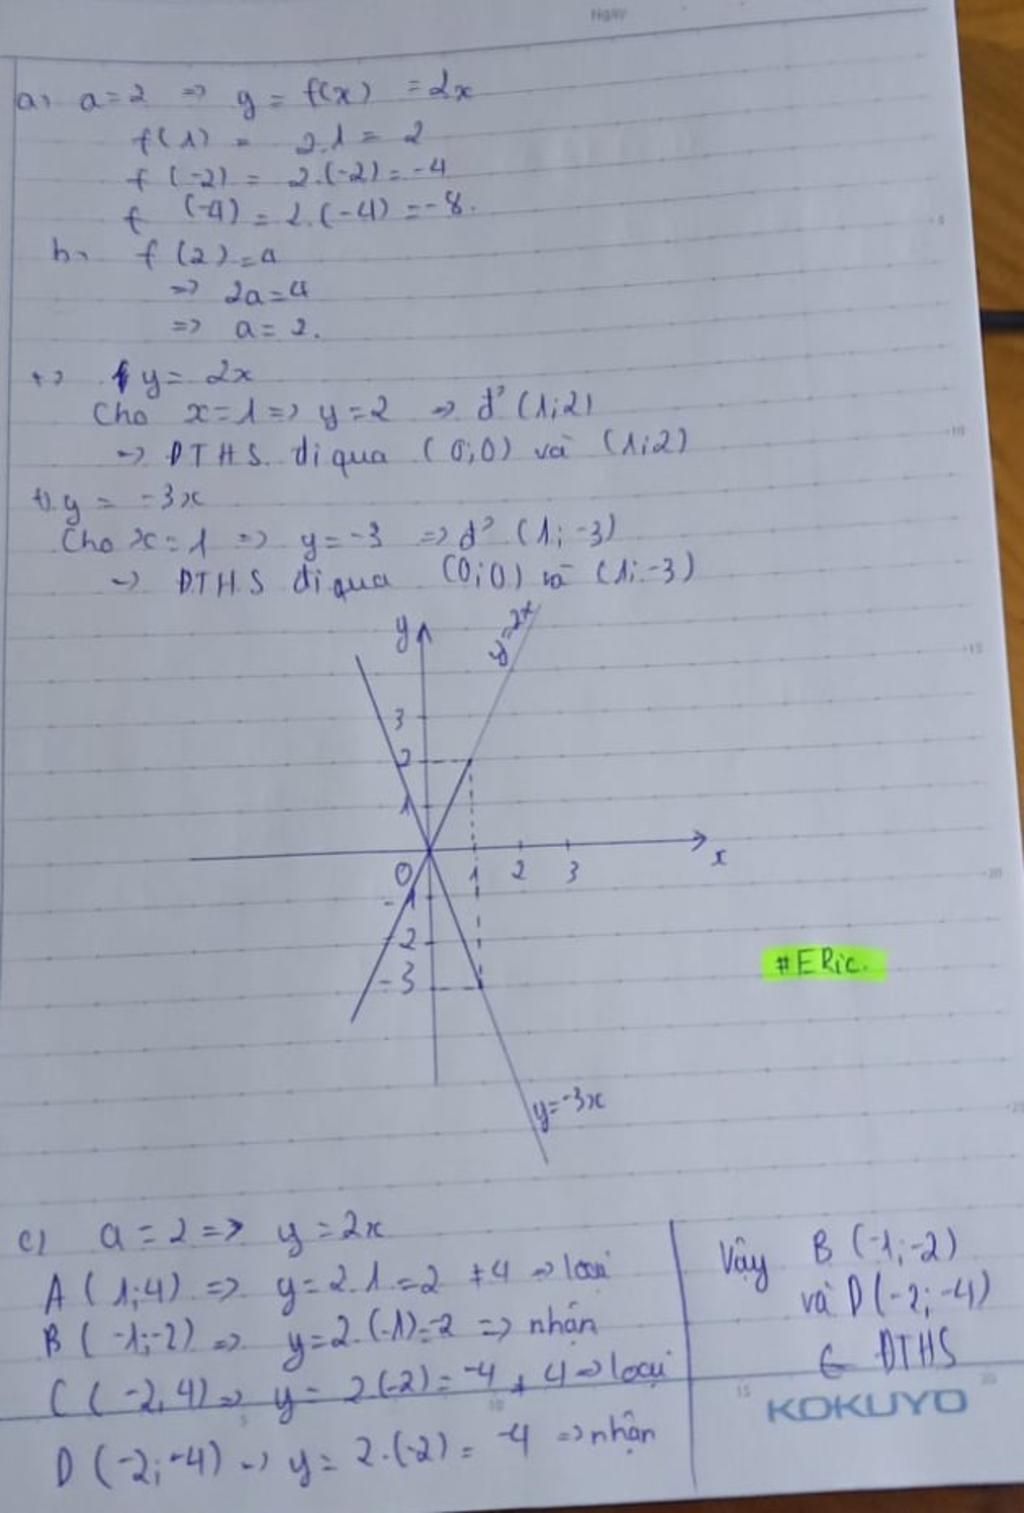 Ngày
a, a=2 => y = f(x) = 2x
f(1) = 2.1 = 2
f(-2) = 2.(-2) = -4
f(-4) = 2.(-4) = -8.
b, f(2)=a
=> 2a=4
=> a = 2.
+> y = 2x
Cho x=1 => y=2 -> đ' (1;2)
-> ĐTHS đi qua (0;0) và (1;2)
+) y = -3x
Cho x=1 => y=-3 => đ' (1;-3)
-> ĐTHS đi qua (0;0) và (1;-3)
y
y=2x
3
2
1
0 1 2 3 x
-1
-2
-3
#ERic.
y=-3x
c) a=2 => y=2x
A (1;4) => y=2.1=2 ≠4 => loại
B (-1;-2) => y=2.(-1)=-2 => nhận
C (-2,4) => y=2(-2)=-4 ≠ 4 => loại
D (-2;-4) -> y=2.(-2)= -4 => nhận
Vậy B (-1;-2)
và D(-2;-4)
∈ ĐTHS
KOKUYO
5
10
15
20